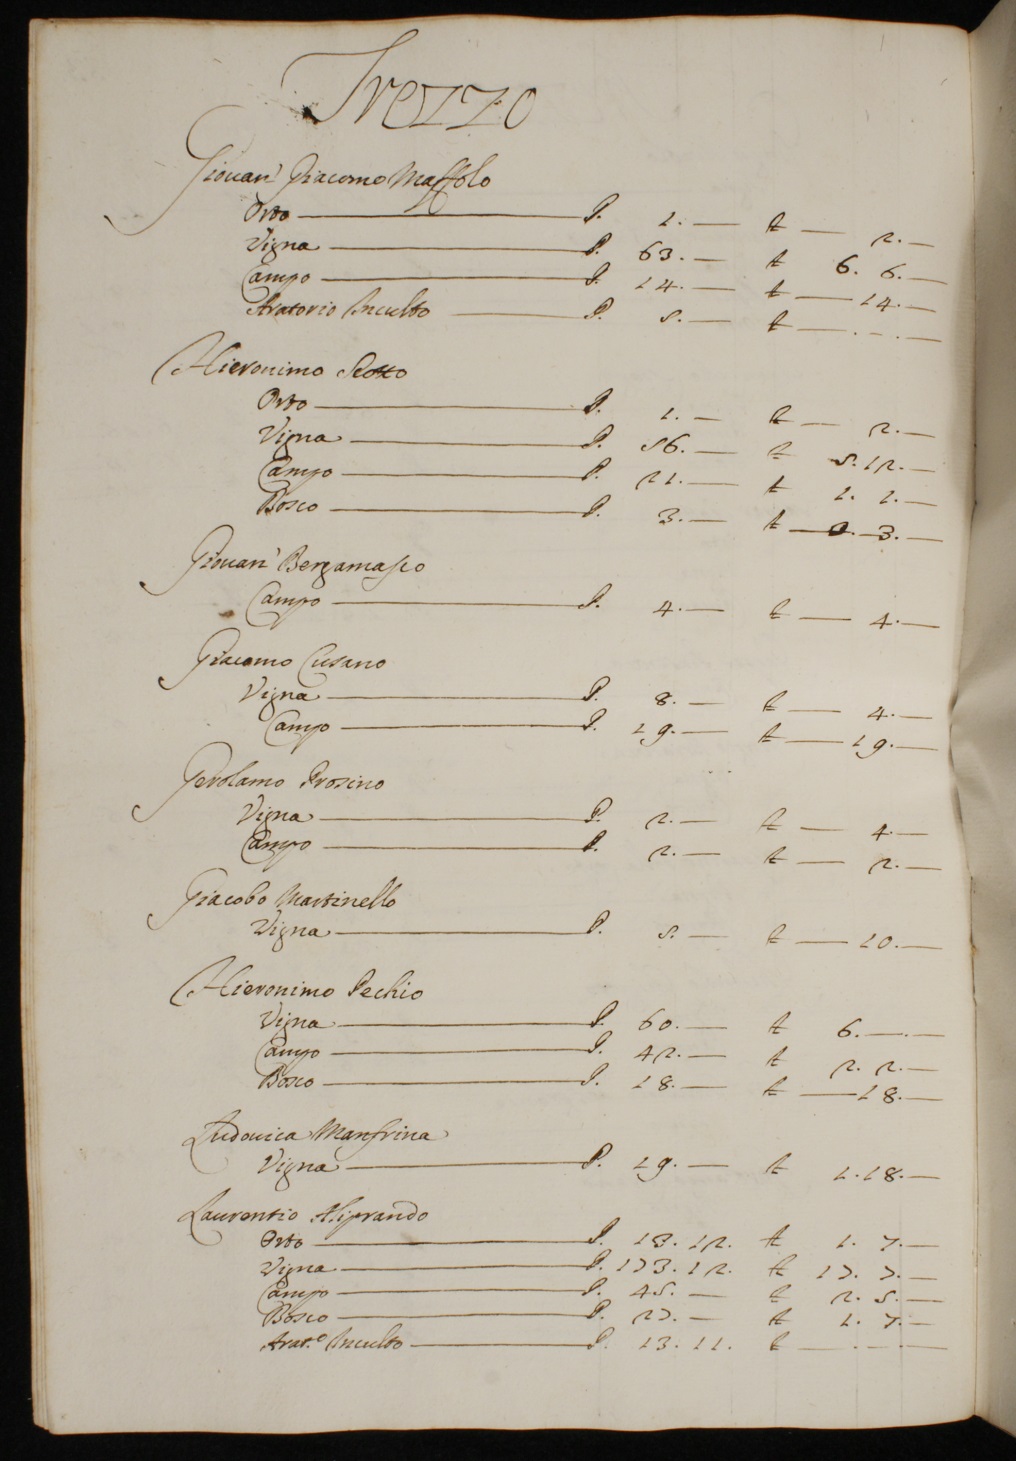 Trezzo
Giouan' Giacomo Maffolo
Orto — P. 1. — £ — 2. —
Vigna — P. 63. — £ 6. 6. —
Campo — P. 14. — £ — 14. —
Aratorio Inculto — P. 5. — £ — . — . —
Hieronimo Rotto
Orto — P. 1. — £ — 2. —
Vigna — P. 56. — £ 5. 12. —
Campo — P. 21. — £ 1. 1. —
Bosco — P. 3. — £ — 3. —
Giouan' Bergamasco
Campo — P. 4. — £ — 4. —
Giacomo Cusano
Vigna — P. 8. — £ — 4. —
Campo — P. 19. — £ — 19. —
Gerolamo Prosino
Vigna — P. 2. — £ — 4. —
Campo — P. 2. — £ — 2. —
Giacobo Martinello
Vigna — P. 5. — £ — 10. —
Hieronimo Pechio
Vigna — P. 60. — £ 6. — . —
Campo — P. 42. — £ 2. 2. —
Bosco — P. 18. — £ — 18. —
Ludouica Manfrina
Vigna — P. 19. — £ 1. 18. —
Laurentio Aliprando
Orto — P. 13. 12. £ 1. 7. —
Vigna — P. 173. 12. £ 17. 7. —
Campo — P. 45. — £ 2. 5. —
Bosco — P. 27. — £ 1. 7. —
Arat.o Inculto — P. 13. 11. £ — . — . —